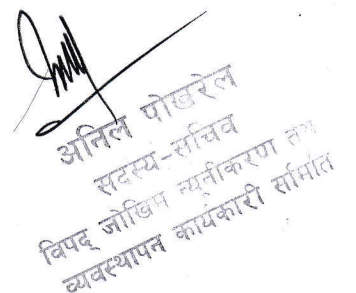 अनिल पोखरेल
सदस्य-सचिव
विपद् जोखिम न्यूनीकरण तथा
व्यवस्थापन कार्यकारी समिति